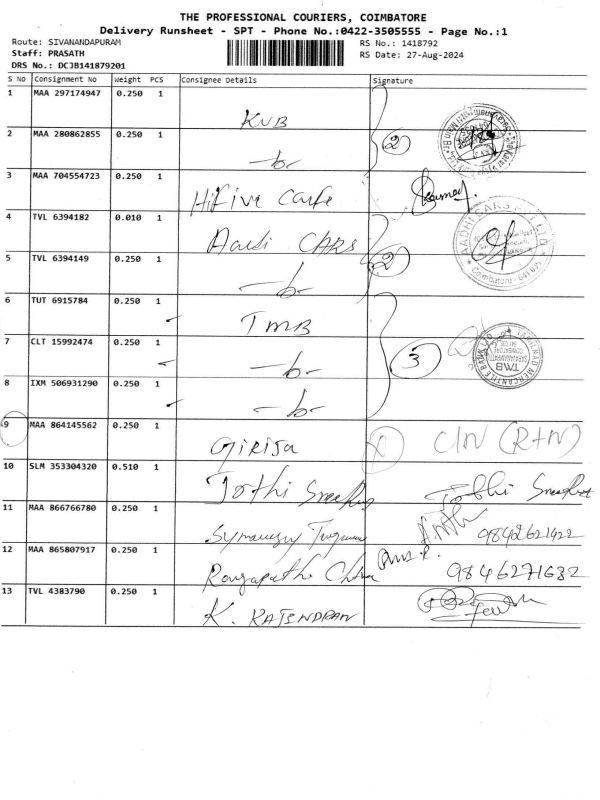 THE PROFESSIONAL COURIERS, COIMBATORE
Delivery Runsheet - SPT - Phone No.:0422-3505555 - Page No.:1
Route: SIVANANDAPURAM RS No.: 1418792
Staff: PRASATH RS Date: 27-Aug-2024
DRS No.: DCJB141879201
S No Consignment No Weight PCS Consignee Details Signature
1 MAA 297174947 0.250 1
KVB
2 MAA 280862855 0.250 1 2
-b-
3 MAA 704554723 0.250 1
Hifive
4 TVL 6394182 0.010 1
CARS
5 TVL 6394149 0.250 1 2
-b-
6 TUT 6915784 0.250 1
TMB
7 CLT 15992474 0.250 1 3
-b-
TAMILNAD MERCANTILE BANK LTD
TMB
8 IXM 506931290 0.250 1
-b-
9 MAA 864145562 0.250 1
Girija X C/N (RTN)
10 SLM 353304320 0.510 1
Jothi Jothi
11 MAA 866766780 0.250 1
9842621422
12 MAA 865807917 0.250 1
9846271632
13 TVL 4383790 0.250 1
K. RAJENDRAN